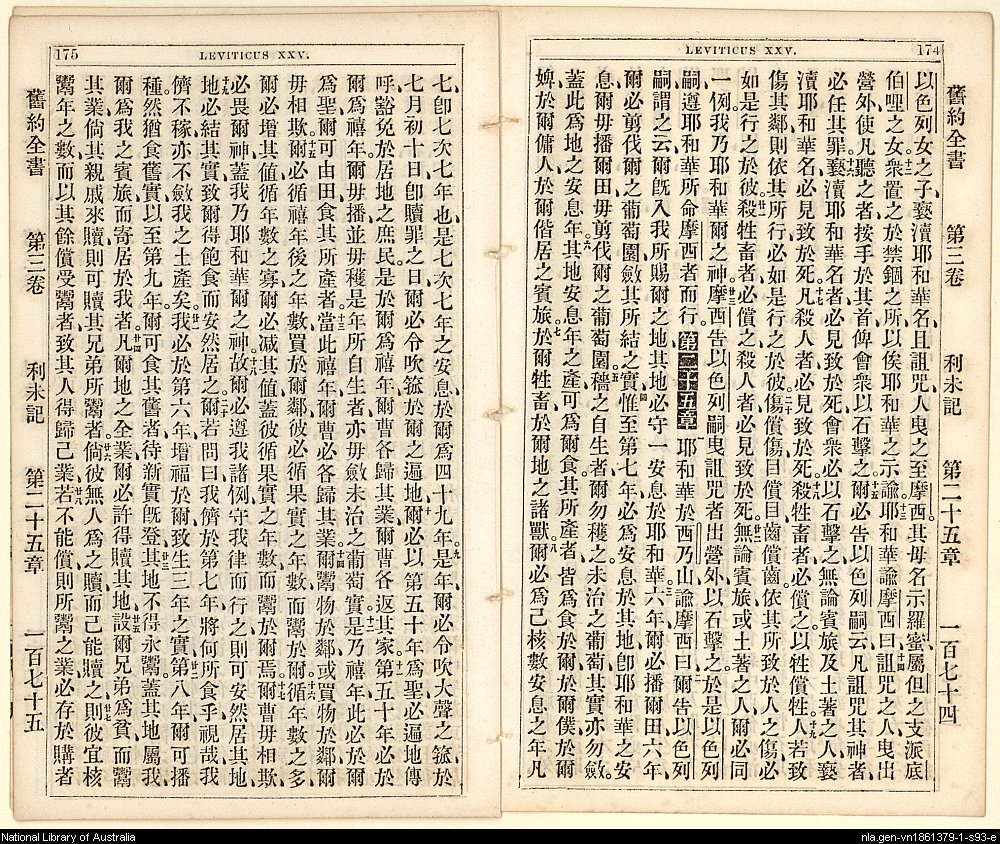 LEVITICUS XXV.
174
舊約全書 第三卷 利未記 第二十五章 一百七十四
以色列女之子、褻瀆耶和華名、且詛咒、人曳之至摩西、其母名示羅蜜、屬但之支派底
伯哩之女、十二衆置之於禁錮之所、以俟耶和華之示諭、十三耶和華諭摩西曰、十四詛咒之人、曳出
營外、使凡聽之者、按手於其首、俾會衆以石擊之、十五爾必告以色列嗣云、凡詛咒其神者、
必任其罪、十六褻瀆耶和華名者、必見致於死、會衆必以石擊之、無論賓旅及土著之人、褻
瀆耶和華名、必見致於死、十七凡殺人者、必見致於死、十八殺牲畜者、必償之、以牲償牲、十九人若致
傷其鄰、則依其所行、必如是行之於彼、二十傷償傷、目償目、齒償齒、依其所致於人之傷、必
如是行之於彼、廿一殺牲畜者、必償之、殺人者、必見致於死、廿二無論賓旅或土著之人、爾必同
一例、我乃耶和華爾之神、廿三摩西告以色列嗣、曳詛咒者出營外、以石擊之、於是以色列
嗣、遵耶和華所命摩西者而行。第二十五章 耶和華於西乃山諭摩西曰、二爾告以色列
嗣、謂之云、爾旣入我所賜爾之地、其地必守一安息於耶和華、三六年爾必播爾田、六年
爾必剪伐爾之葡萄園、斂其所結之實、四惟至第七年、必爲安息於其地、卽耶和華之安
息、爾毋播爾田、毋剪伐爾之葡萄園、五穡之自生者、爾勿穫之、未治之葡萄、其實亦勿斂、
蓋此爲地之安息年、六其地安息年之產、可爲爾食、其所產者、皆爲食於爾、於爾僕、於爾
婢、於爾傭人、於爾偕居之賓旅、七於爾牲畜、於爾地之諸獸、八爾必爲己核數安息之年、凡
LEVITICUS XXV.
175
七、卽七次七年也、是七次七年之安息、於爾爲四十九年、九是年爾必令吹大聲之箛、於
七月初十日、卽贖罪之日、爾必令吹箛於爾之遍地、十爾必以第五十年爲聖、必遍地傳
呼豁免於居地之庶民、是於爾爲禧年、爾曹各歸其業、爾曹各返其家、十一第五十年必於
爾爲禧年、爾毋播、並毋穫是年所自生者、亦毋斂未治之葡萄實、十二是乃禧年、此必於爾
爲聖、爾可由田食其所產者、十三當此禧年、爾曹必各歸其業、十四爾鬻物於鄰、或買物於鄰、爾
毋相欺、十五爾必循禧年後之年數、買於爾鄰、彼必循果實之年數、而鬻於爾、十六循年數之多
爾必增其値、循年數之寡、爾必减其値、蓋彼循果實之年數、而鬻於爾焉、十七爾曹毋相欺
必畏爾神、蓋我乃耶和華爾之神、十八故爾必遵我諸例、守我律而行之、則可安然居其地、
十九地必結其實、致爾得飽食、而安然居之、二十爾若問曰、我儕於第七年、將何所食乎、視哉、我
儕不稼、亦不斂我之土產矣、廿一我必於第六年、增福於爾、致生三年之實、廿二第八年爾可播
種、然猶食舊實、以至第九年、爾可食其舊者、待新實旣登、廿三其地不得永鬻、蓋其地屬我
爾爲我之賓旅、而寄居於我者、廿四凡爾地之全業、爾必許得贖其地、廿五設爾兄弟爲貧、而鬻
其業、倘其親戚來贖、則可贖其兄弟所鬻者、廿六倘彼無人爲之贖、而己能贖之、廿七則彼宜核
鬻年之數、而以其餘償受鬻者、致其人得歸己業、廿八若不能償、則所鬻之業、必存於購者
舊約全書 第三卷 利未記 第二十五章 一百七十五
National Library of Australia
nla.gen-vn1861379-1-s93-e